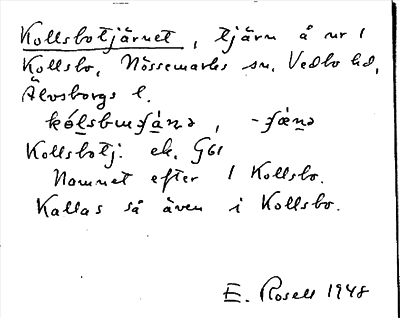 Kollsbotjärnet, tjärn å nr 1
Kollsbo, Nössemarks sn, Vedbo hd,
Älvsborgs l.
kólsbuʃä̀nə, -ʃæ̀nə
Kollsbotj: ek. G61
Namnet efter 1 Kollsbo.
Kallas så även i Kollsbo.
E. Rosell 1948